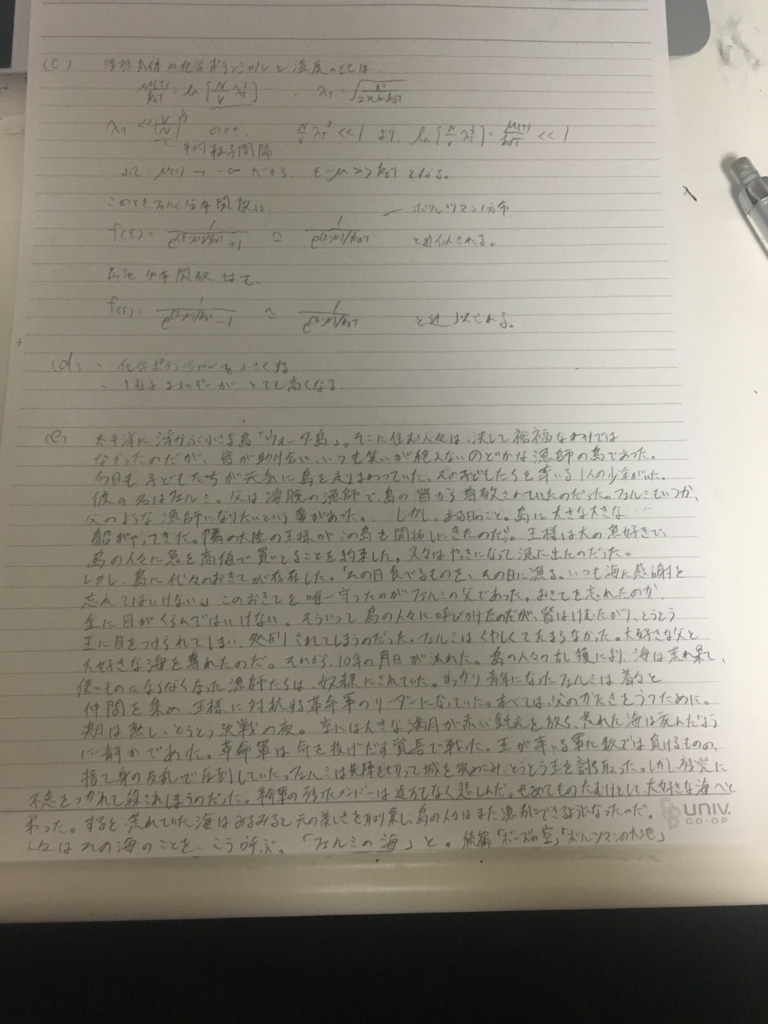 (c) 理想気体の化学ポテンシャルと温度の比は
μ(T)/k_BT = ln[N/V λ_T³] , λ_T = √(h²/2πmk_BT)
λ_T << (V/N)^{1/3} のとき、 N/V λ_T³ << 1 より、 ln[N/V λ_T³] = μ(T)/k_BT << 1
平均粒子間隔
μ(T) → -∞ ε-μ >> k_BT となる。
このときフェルミ分布関数は ボルツマン分布
f(ε) = 1/(e^{(ε-μ)/k_BT}+1) ≃ 1/e^{(ε-μ)/k_BT} と近似される。
Bose 分布関数も
f(ε) = 1/(e^{(ε-μ)/k_BT}-1) ≃ 1/e^{(ε-μ)/k_BT} と近似される。
(d) ・化学ポテンシャルを小さくする
・1粒子エネルギーが とても高くなる。
(e) 太平洋に浮かぶ小さな島「ウォータ島」。そこに住む人々は、決して裕福なわけでは
なかったのだが、皆が助け合い、いつも笑いが絶えないのどかな漁師の島であった。
今日も子どもたちが元気に島を走りまわっていた。その子どもたちを率いる1人の少年がいた。
彼の名はフェルミ。父は凄腕の漁師で島の皆から尊敬されていたのだった。フェルミもいつか、
父のような漁師になりたいという夢があった。しかし、ある日のこと。島に大きな大きな
船がやってきた。隣の大陸の王様がこの島を開拓しにきたのだ。王様は大の魚好きで、
島の人々に魚を高値で買いとることを約束した。人々はやっきになって漁に出たのだった。
しかし、島に代々のおきてが存在した。「その日食べるものを、その日に漁る。いつも海に感謝を
忘れてはいけない」このおきてを唯一守ったのがフェルミの父であった。おきてを忘れたのか、
金に目がくらんではいけない。そういって島の人々に呼びかけたのだが、皆はけむたがり、とうとう
王に目をつけられてしまい、処刑されてしまうのだった。フェルミはくやしくてたまらなかった。大好きな父と
大好きな海を奪われたのだ。それから、10年の月日が流れた。島の人々の乱獲により、海は荒れ果て、
使いものにならなくなった漁師たちは、奴隷にされていた。すっかり青年になったフェルミは着々と
仲間を集め、王様に対抗する革命軍のリーダーになっていた。すべては、父のかたきをうつために。
期は熟し、とうとう決戦の夜。空には大きな満月が赤い鈍光を放ち、荒れた海は死んだよう
に静かであった。革命軍は命を投げだす覚悟で戦った。王が率いる軍に数では負けるものの、
捨て身の反乱で圧倒していた。フェルミは先陣を切って城を攻めこみ、とうとう王を討ち取った。しかし残党に
不意をつかれて殺されてしまうのだった。革命軍の残ったメンバーは途方もなく悲しんだ。せめてものたむけとして大好きな海へと
葬った。すると、荒れていた海はみるみると元の美しさを取り戻し、島の人々はまた漁ができるようになったのだ。
人々はその海のことを、こう呼ぶ。「フェルミの海」と。 続篇「ボーズの空」、「ボルツマンの大地」
UNIV.
CO-OP